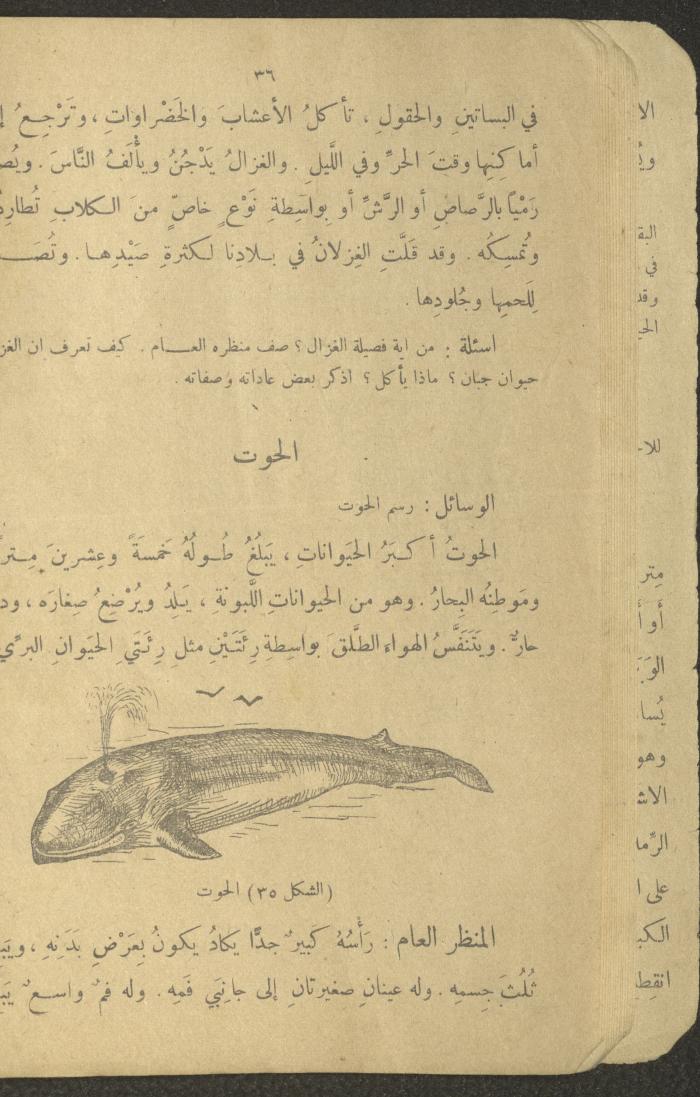 ٣٦
في البساتينِ والحقولِ ، تأكلُ الأعشابَ والخَضْراواتِ ، وتَرْجِعُ
أماكِنِها وقتَ الحرِّ وفي اللَّيلِ . والغزالُ يَدْجُنُ ويأْلَفُ النَّاسَ .
رَمْياً بالرَّصاصِ أو الرَّشِّ أو بواسِطةِ نَوْعٍ خاصٍّ منَ الكلابِ
وتُمسِكُه . وقد قَلَّتِ الغِزلانُ في بلادِنا لكثرةِ صَيْدِها .
لِلَحمِها وجُلودِها .
اسئلة : من اية فصيلة الغزال ؟ صف منظره العام . كيف تعرف ان
حيوان جبان ؟ ماذا يأكل ؟ اذكر بعض عاداته وصفاته .
الحوت
الوسائل : رسم الحوت
الحوتُ أكبَرُ الحيَواناتِ ، يَبلُغُ طُولُهُ خَمسَةً وعِشرينَ مِتراً
ومَوطِنُه البِحارُ . وهو من الحيواناتِ اللَّبونةِ ، يَلِدُ ويُرْضِعُ صِغارَه ،
حارٌّ . ويَتَنَفَّسُ الهواءَ الطَّلْقَ بواسِطةِ رِئَتَيْنِ مثلِ رِئَتَيِ الحيَوانِ البرِّي
(الشكل ٣٥) الحوت
المنظر العام : رَأْسُهُ كبيرٌ جدًّا يكادُ يكونُ بعَرْضِ بَدَنِهِ ،
ثُلُثَ جِسمِه . وله عينانِ صغيرتانِ إلى جانِبَي فَمِه . وله فمٌ واسعٌ
في
وهو
على